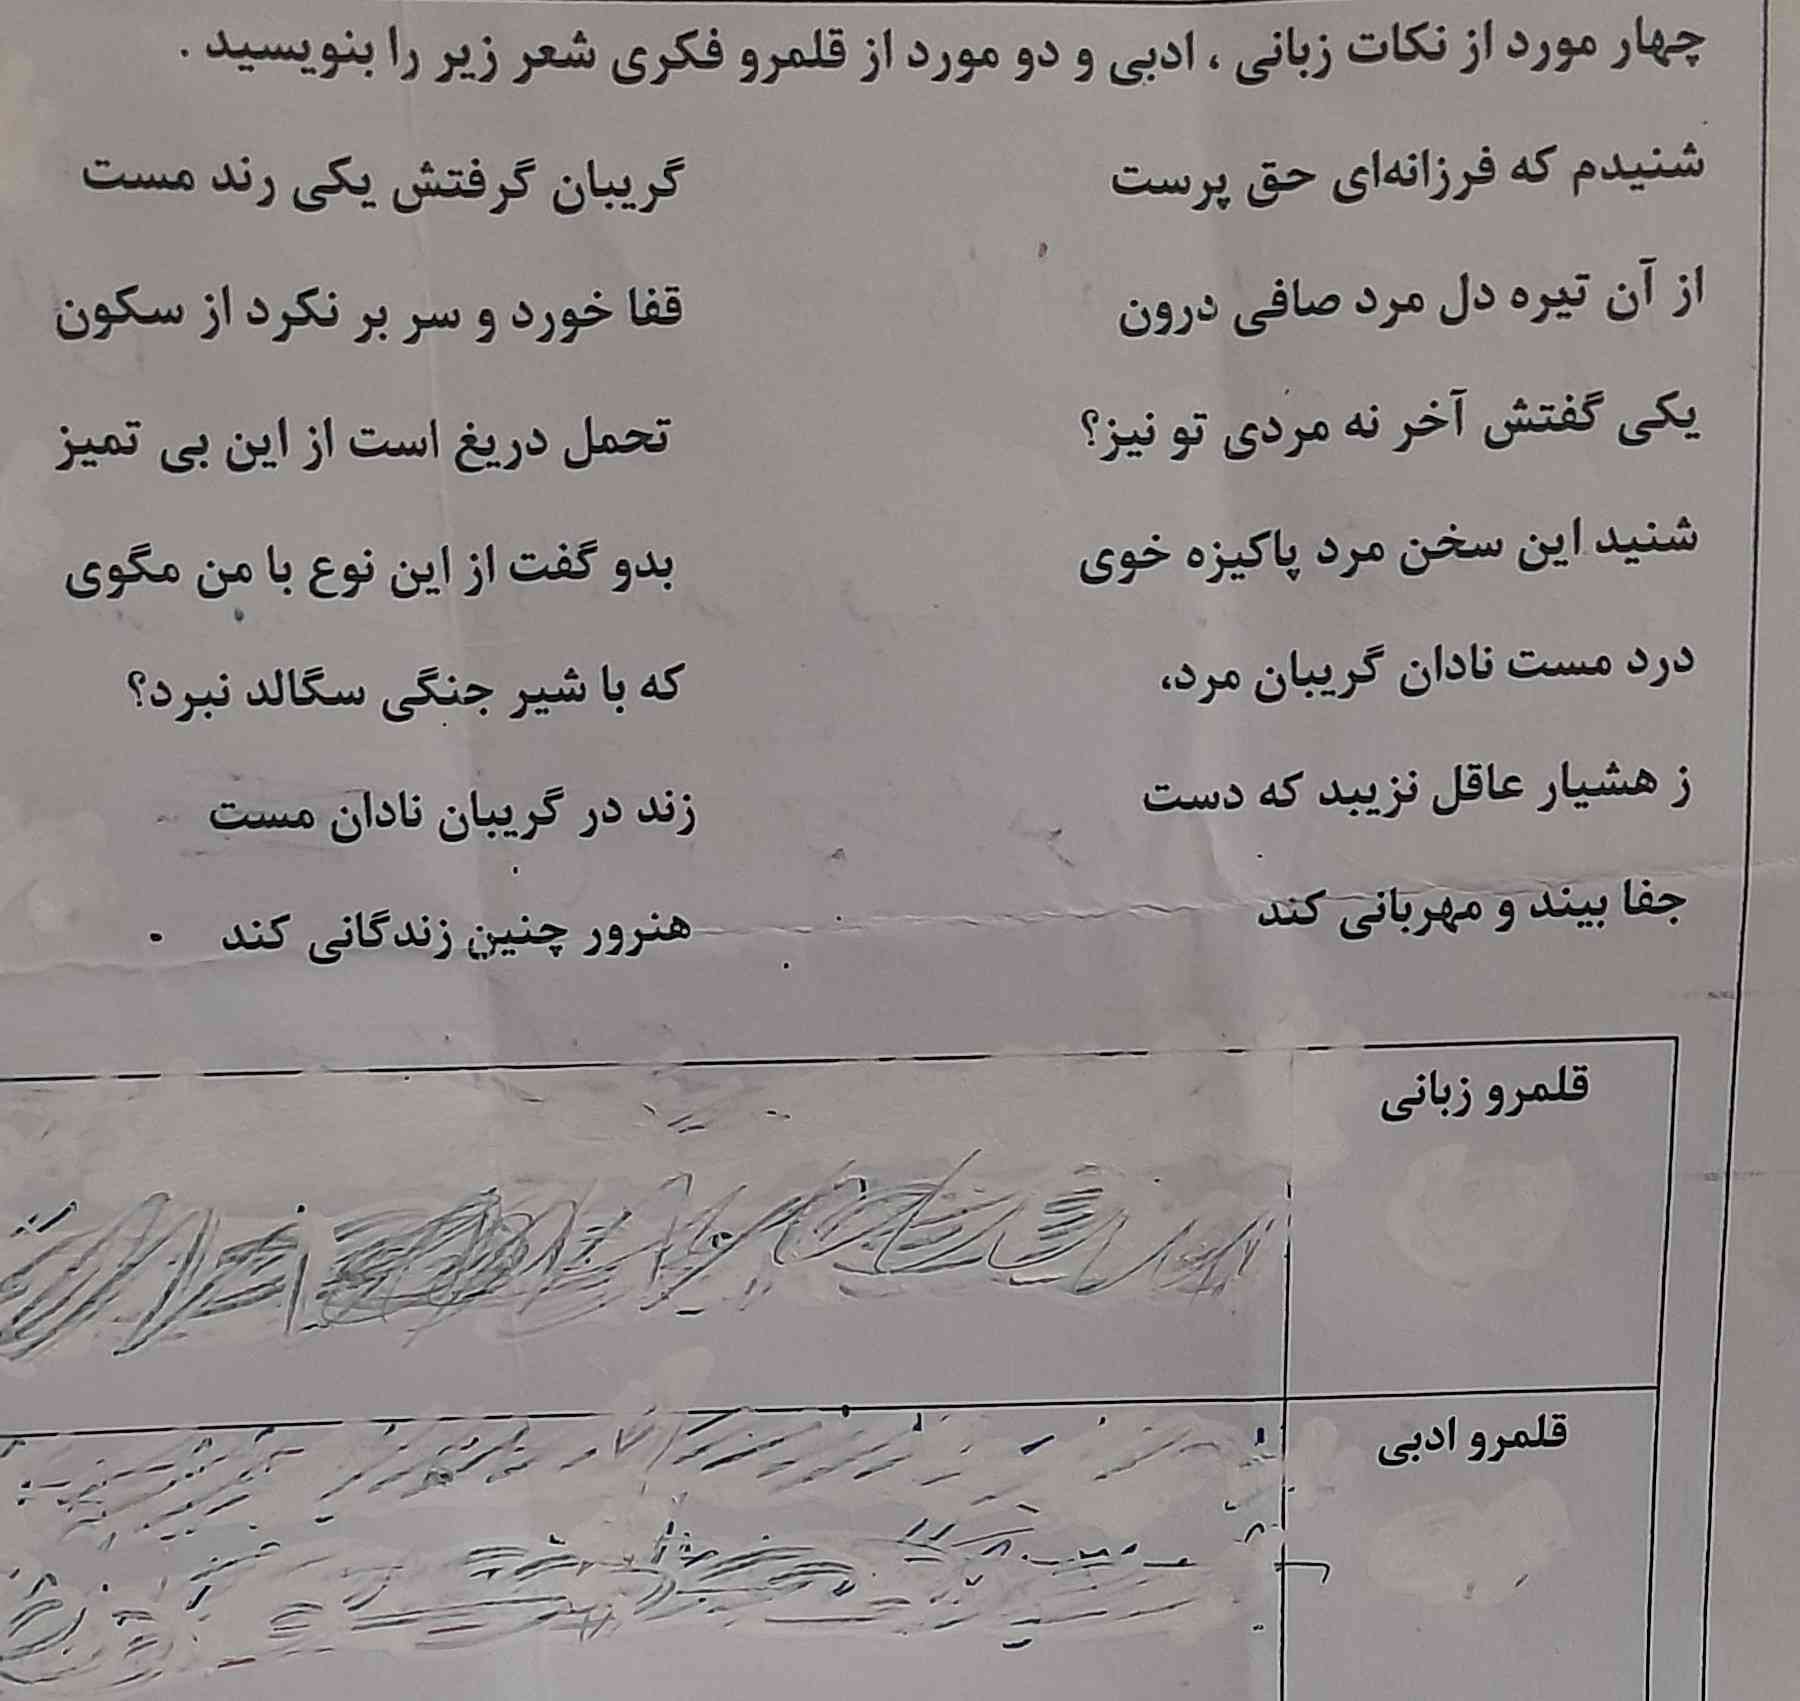 چهار مورد از نکات زبانی ، ادبی و دو مورد از قلمرو فکری شعر زیر را بنویسید .
شنیدم که فرزانه‌ای حق پرست گریبان گرفتش یکی رند مست
از آن تیره دل مرد صافی درون قفا خورد و سر بر نکرد از سکون
یکی گفتش آخر نه مردی تو نیز؟ تحمل دریغ است از این بی تمیز
شنید این سخن مرد پاکیزه خوی بدو گفت از این نوع با من مگوی
درد مست نادان گریبان مرد، که با شیر جنگی سگالد نبرد؟
ز هشیار عاقل نزیبد که دست زند در گریبان نادان مست
جفا بیند و مهربانی کند هنرور چنین زندگانی کند .
قلمرو زبانی
قلمرو ادبی